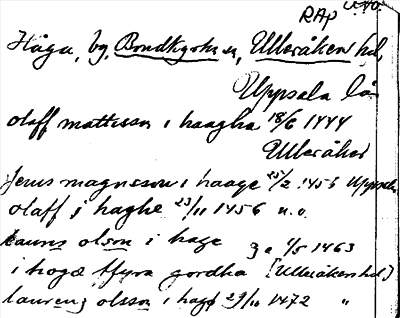 RAP
Håga, by, Bondkyrko sn, Ulleråkers hd,
Uppsala län
olaff mattisson i haagha 18/6 1444
Ulleråker
Jenis magnusson i haage 25/2 1455 Uppsala
olaff i haghe 23/11 1456 u.o.
laurens olson i hage 1/5 1463
i hogæ ffyra gordha [Ulleråkers hd]
laurens olsson i hage 29/10 1472 "